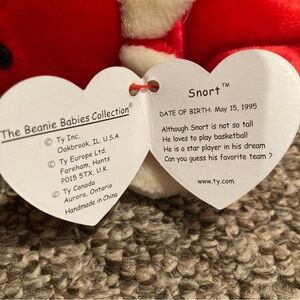 The Beanie Babies Collection®
© Ty Inc.
Oakbrook, IL. U.S.A.
© Ty Europe Ltd.
Fareham, Hants
PO15 5TX, U.K.
© Ty Canada
Aurora, Ontario
Handmade in China
Snort™
DATE OF BIRTH: May 15, 1995
Although Snort is not so tall
He loves to play basketball
He is a star player in his dream
Can you guess his favorite team ?
www.ty.com